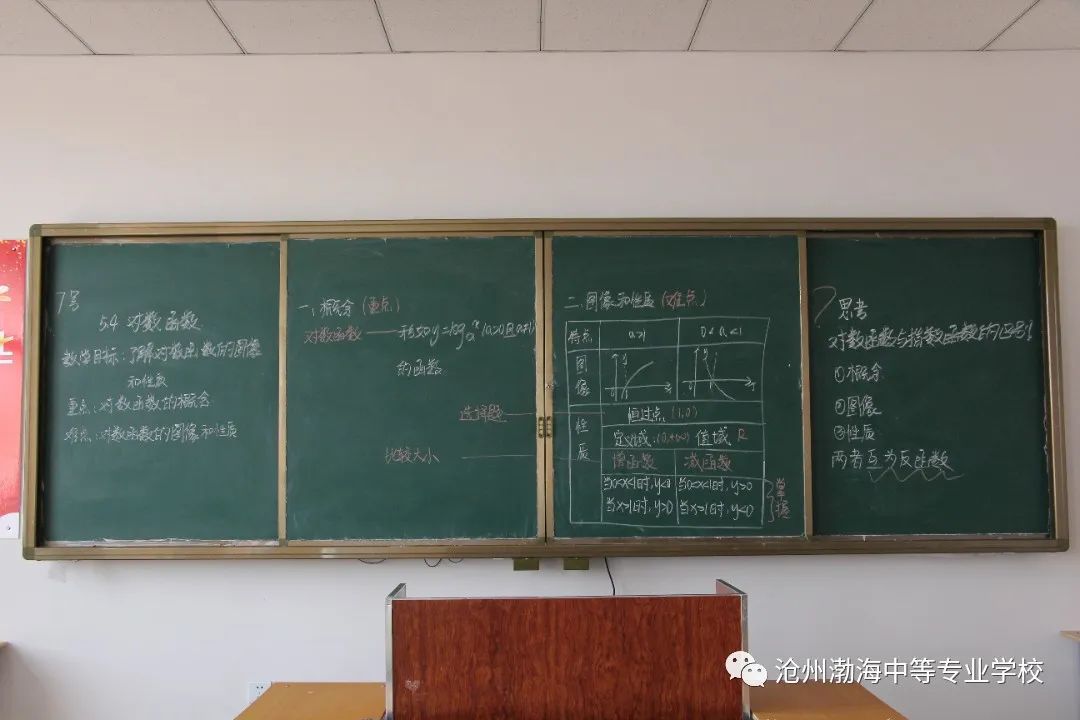 7号
5.4 对数函数
教学目标:了解对数函数的图像
和性质
重点:对数函数的概念
难点:对数函数的图像和性质
一、概念 (重点)
对数函数 —— 形如y=logₐx (a>0且a≠1)
的函数
选择题
比较大小
二.图像和性质 (难点)
特点 a>1 0<a<1
图像
y x y x
性质
恒过点 (1,0)
定义域:(0,+∞) 值域 R
增函数 减函数
当0<x<1时,y<0 当0<x<1时,y>0
当x>1时,y>0 当x>1时,y<0
掌握
? 思考
对数函数与指数函数的
①概念
②图像
③性质
两者互为反函数
沧州渤海中等专业学校